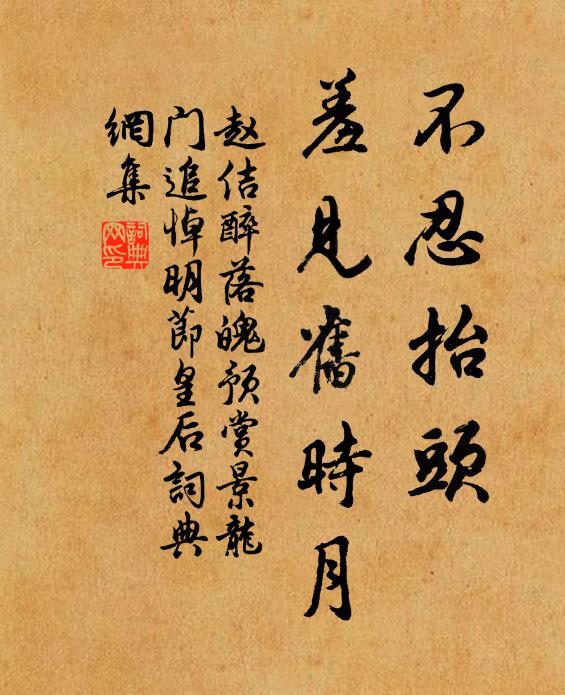 不忍抬頭
羞見舊時月
赵佶醉落魄预赏景龍
门追悼明節皇后詞典
網集
詞典
网印